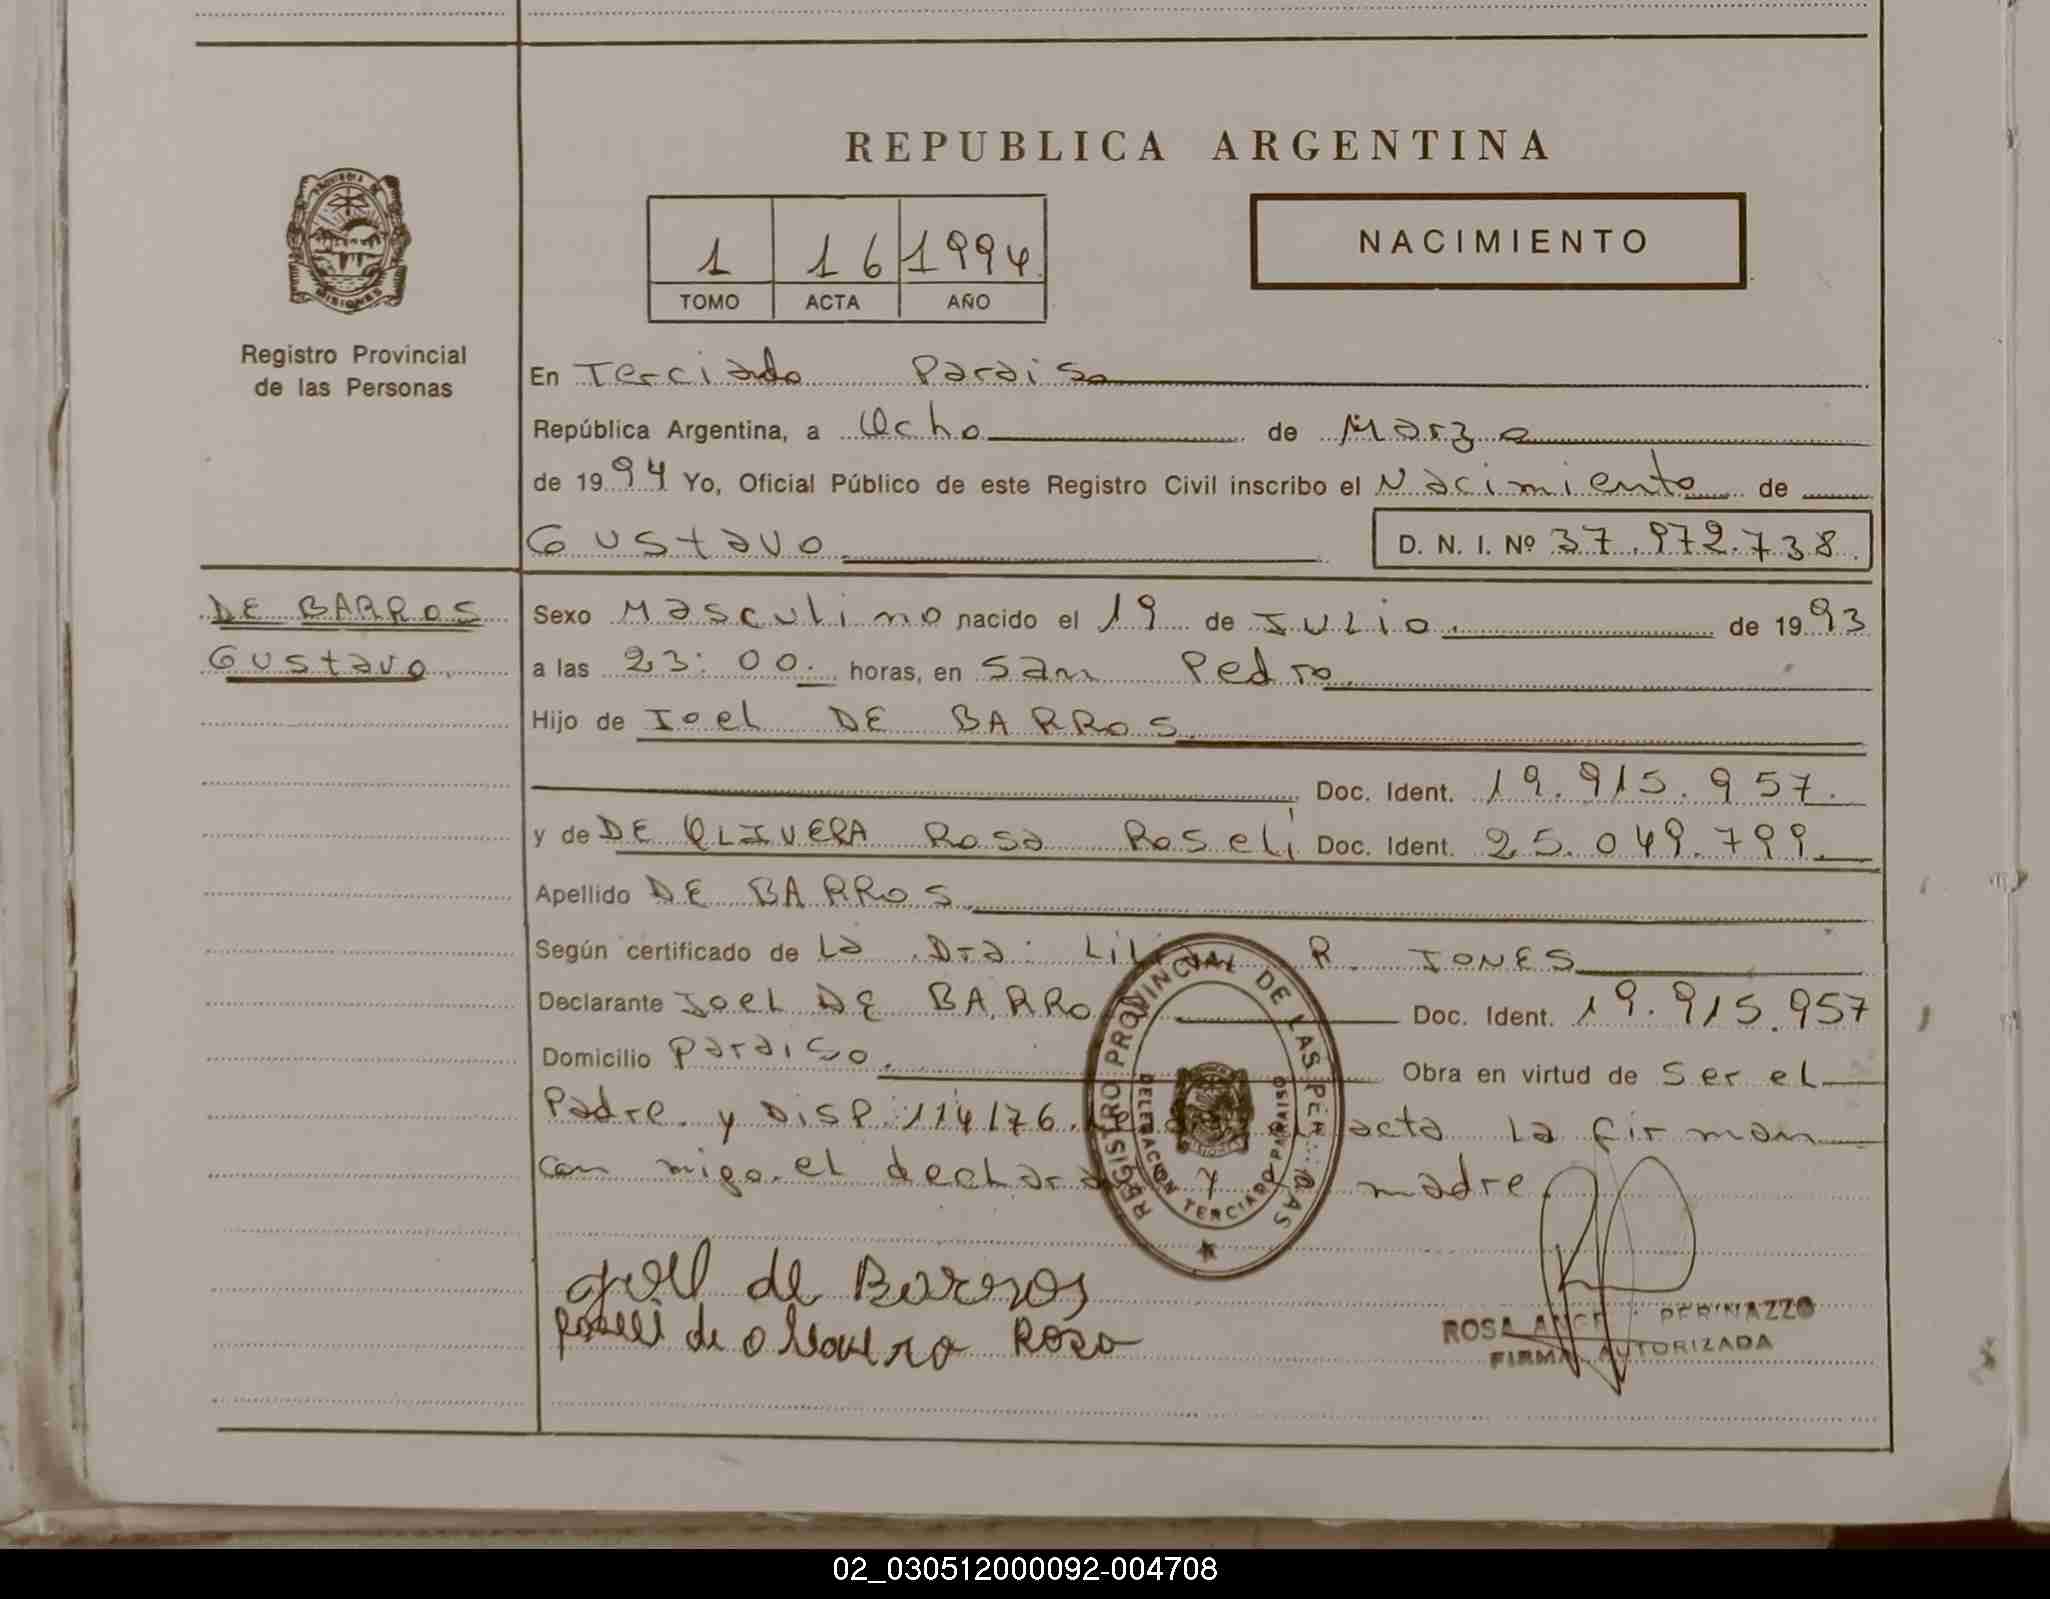 REPUBLICA ARGENTINA
PROVINCIA DE
MISIONES
Registro Provincial
de las Personas
1 16 1994
TOMO ACTA AÑO
NACIMIENTO
En Terciado Paraiso
República Argentina, a Ocho de Marzo
de 1994 Yo, Oficial Público de este Registro Civil inscribo el Nacimiento de
Gustavo D. N. I. Nº 37.972.738.
DE BARROS
Gustavo.
Sexo Masculino nacido el 19 de JULio. de 1993
a las 23:00. horas, en San Pedro.
Hijo de Joel DE BARROS.
Doc. Ident. 19.915.957.
y de DE OLIVERA Rosa Roseli Doc. Ident. 25.049.799.
Apellido DE BARROS.
Según certificado de La Dra: R. JONES
Declarante JoeL DE BARRO Doc. Ident. 19.915.957
Domicilio Paraiso. Obra en virtud de Ser el
Padre y DISP. 114/76. acta La firman
con migo. el madre.
REGISTRO PROVINCIAL DE LAS PER AS
DELEGACION TERCIADO PARAISO
Joel de Barros
Roseli de olivera Rosa
ROSA PERINAZZO
FIRMA AUTORIZADA
02_030512000092-004708